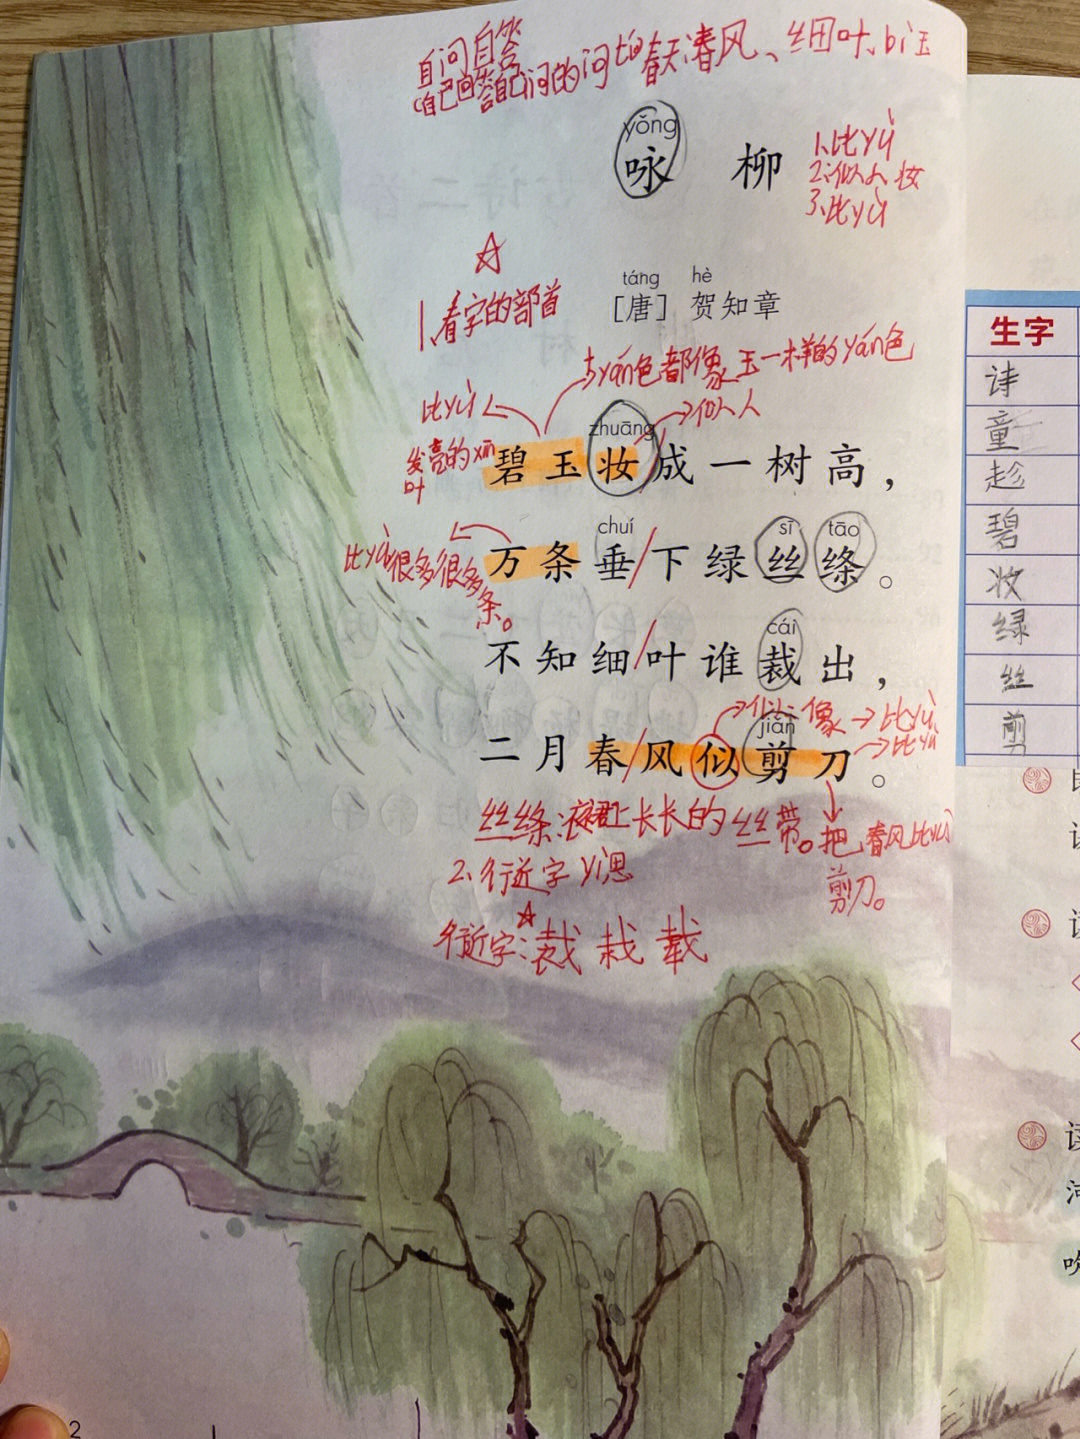 自问自答
(自己回答自己问的问tí
春天:春风、细叶、bì玉
yǒng
咏 柳
1.比yù
2.似人 妆
3.比yù
☆
1.看字的部首
táng hè
[唐] 贺知章
yán色都像玉一样的yán色
比yù
似人
zhuāng
发亮的xīn
叶
碧玉妆/成一树高，
chuí sī tāo
万条垂/下绿丝绦。
比yù很多很多
条。
cái
不知细/叶谁裁出，
似:像→比yù
jiǎn
→比yù
二月春/风似剪刀。
丝绦:衣裙上长长的丝带。
把春风比yù
剪刀。
2.行近字 yì思
☆
行近字:裁 栽 载
2
生字
诗
童
趁
碧
妆
绿
丝
剪